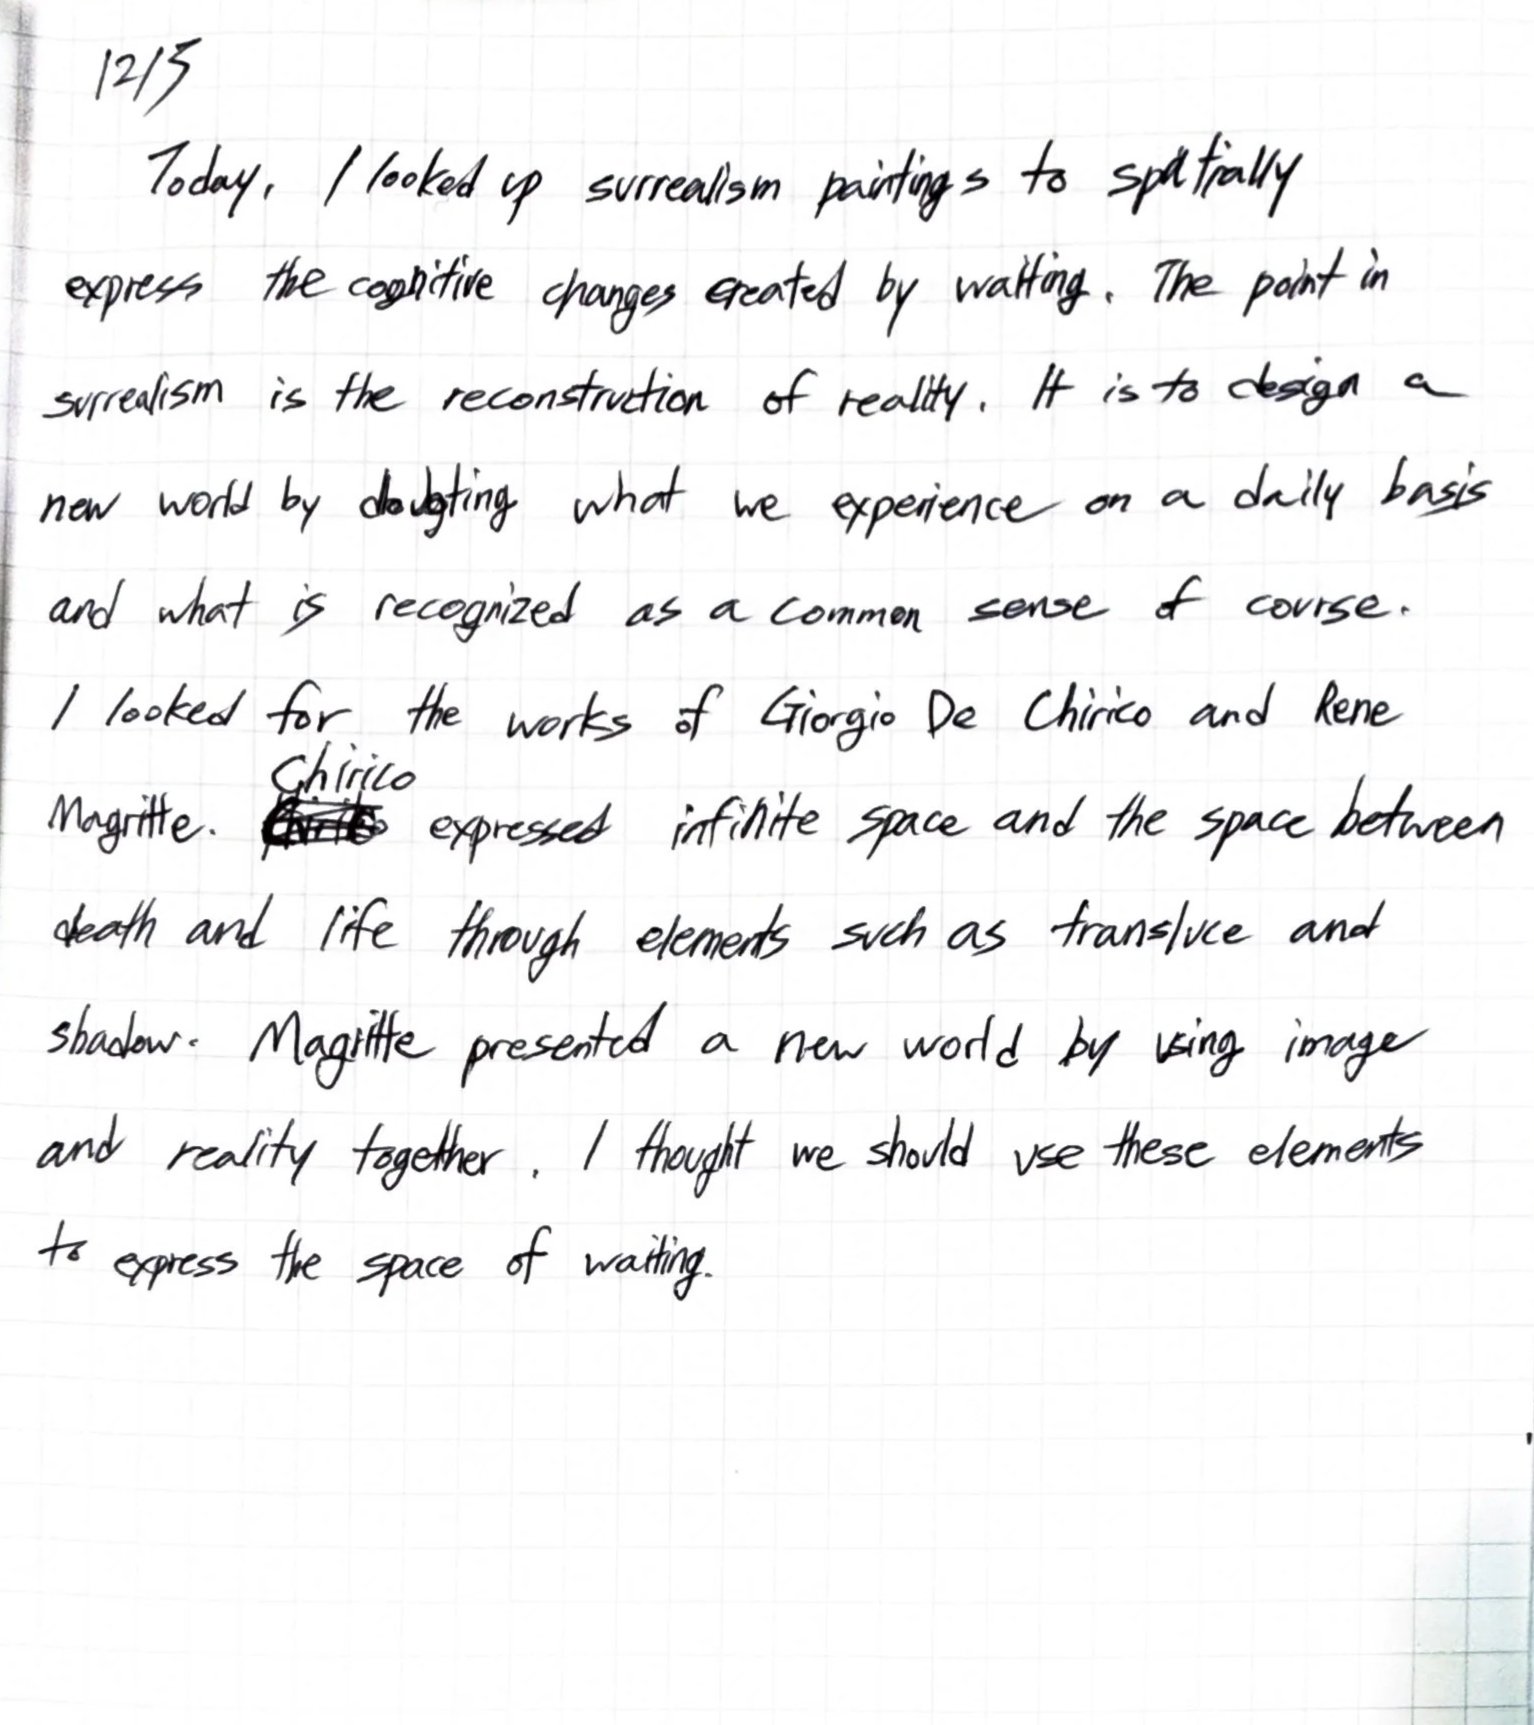 12/5
Today, I looked up surrealism paintings to spatially
express the cognitive changes created by waiting. The point in
surrealism is the reconstruction of reality. It is to design a
new world by doubting what we experience on a daily basis
and what is recognized as a common sense of course.
I looked for the works of Giorgio De Chirico and Rene
Chirico
Magritte. expressed infinite space and the space between
death and life through elements such as transluce and
shadow. Magritte presented a new world by using image
and reality together. I thought we should use these elements
to express the space of waiting.